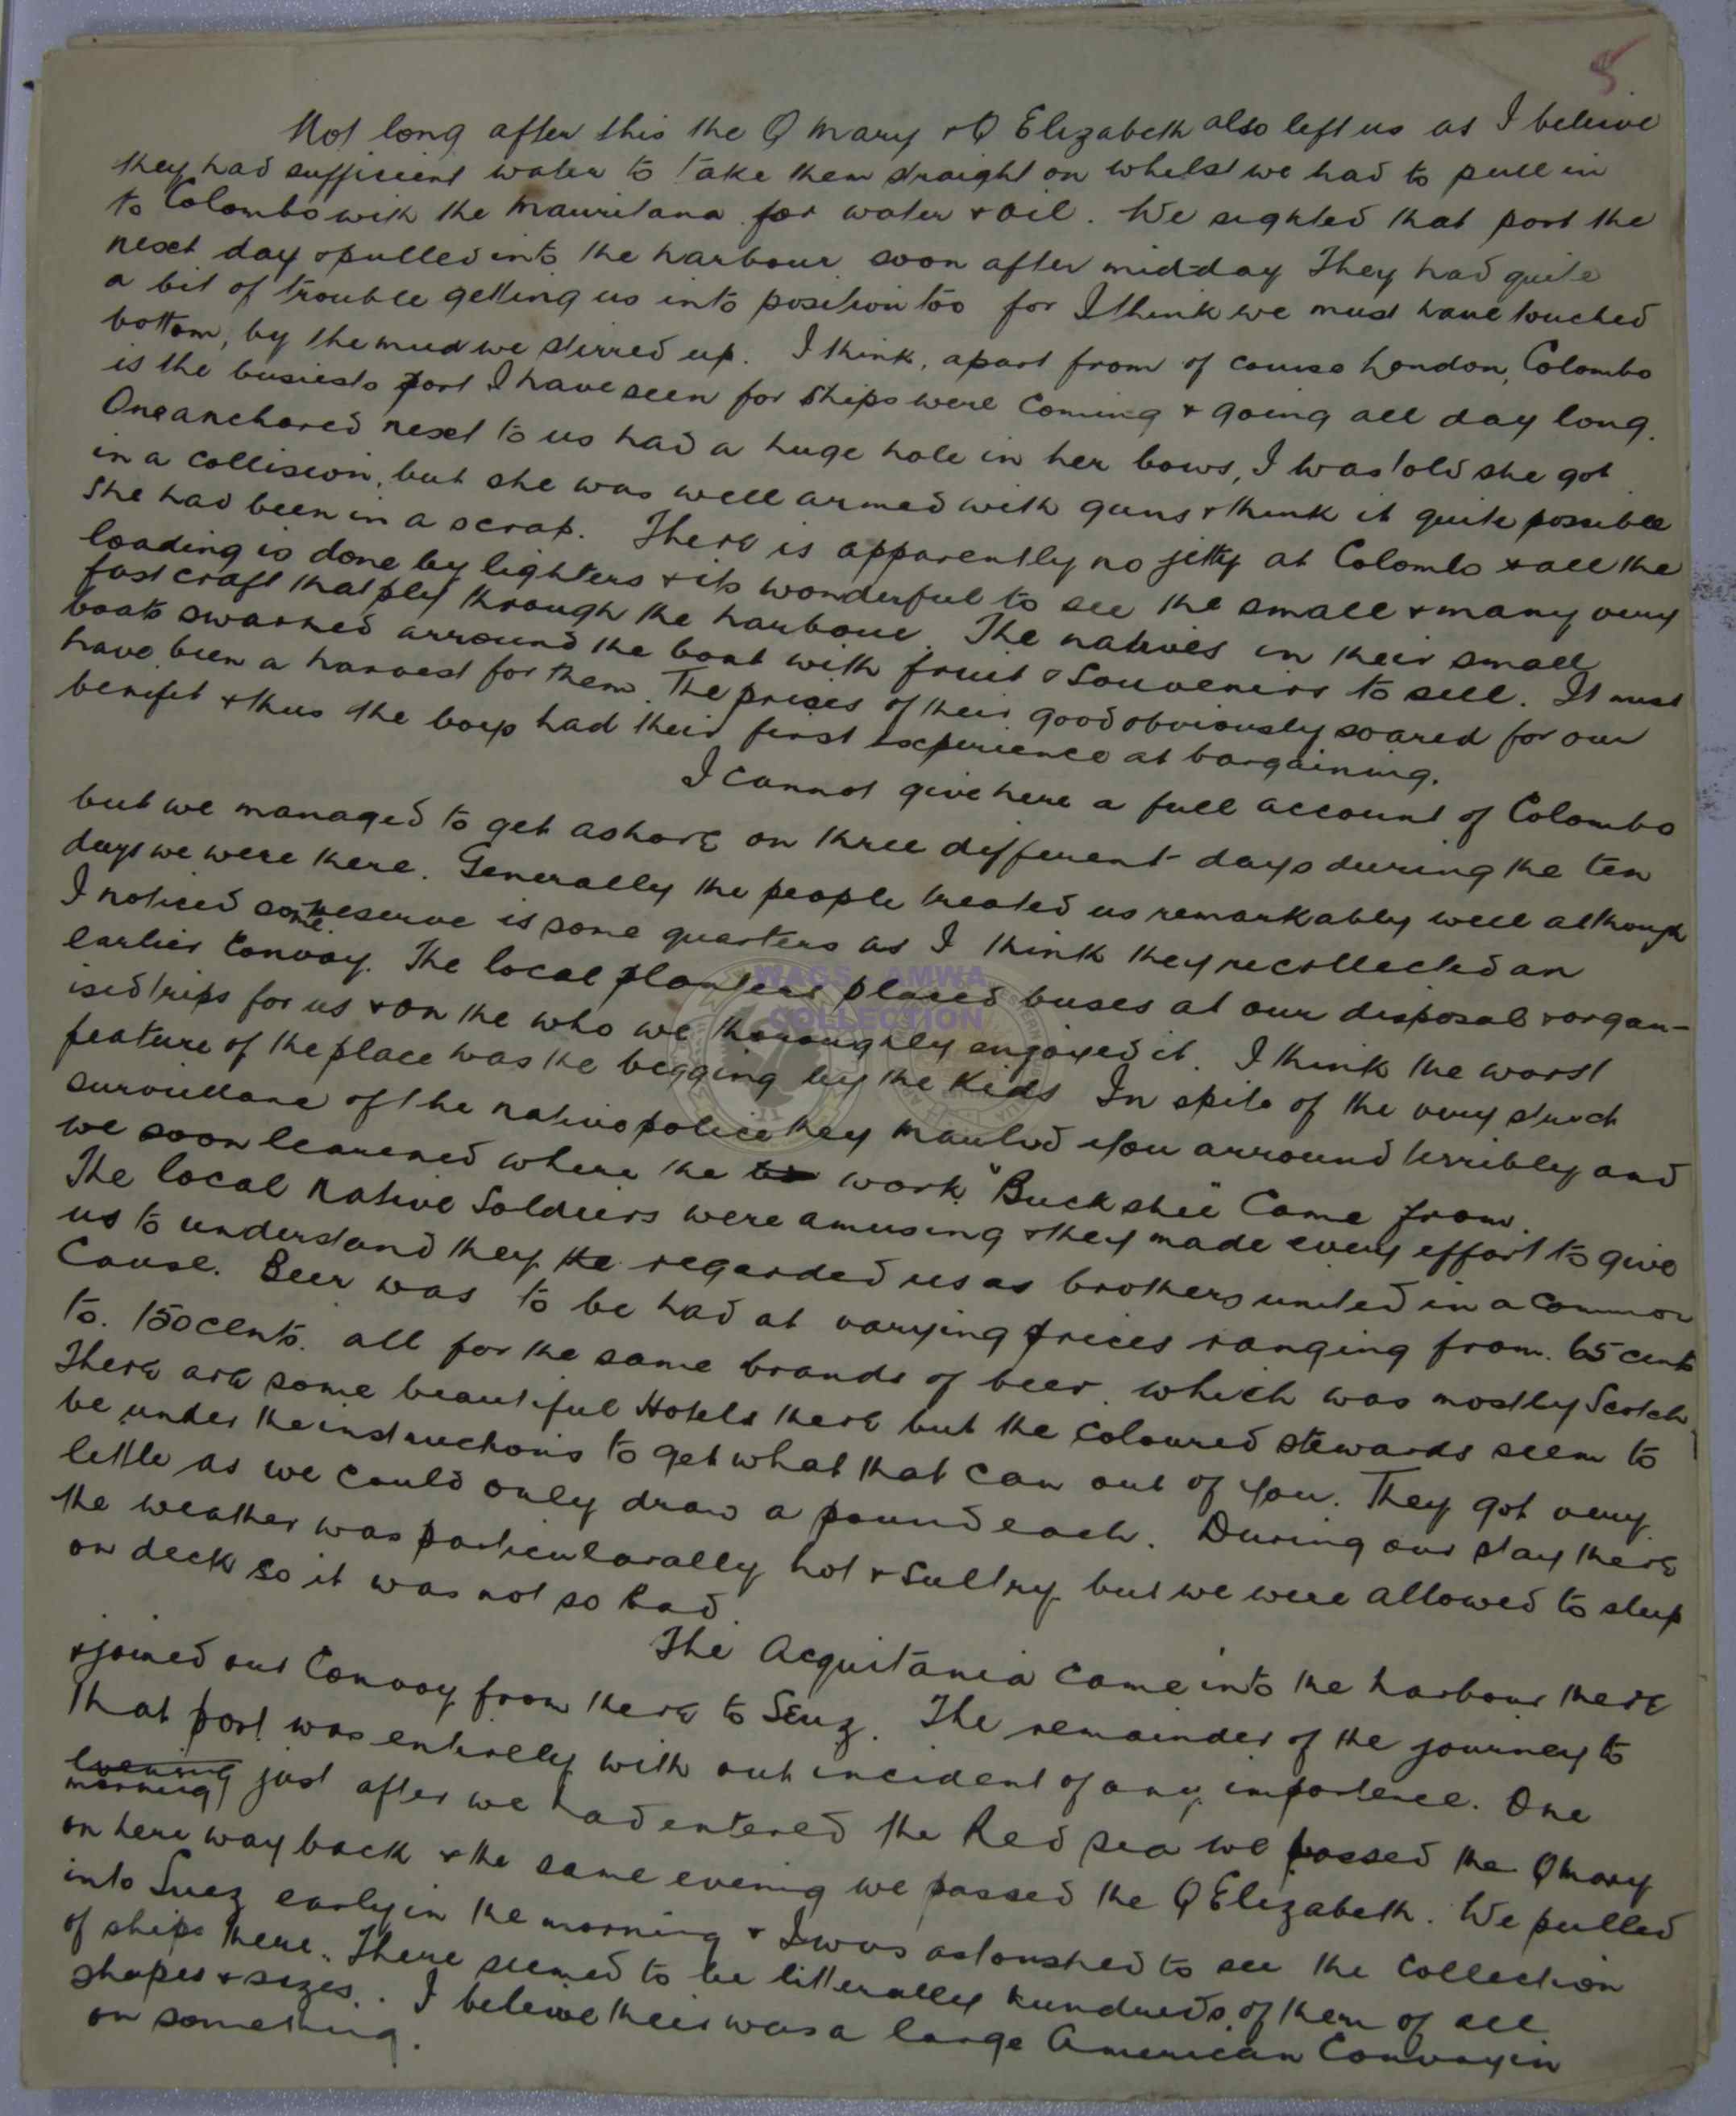 5
Not long after this the Q Mary & Q Elizabeth also left us as I beleive
they had sufficient water to take them straight on whilst we had to pull in
to Colombo with the Mauritana for water & oil. We sighted that port the
next day & pulled into the harbour soon after mid-day They had quite
a bit of trouble getting us into position too for I think we must have touched
bottom, by the mud we stirred up. I think, apart from of course London, Colombo
is the busiest port I have seen for ships were coming & going all day long.
One anchored next to us had a huge hole in her bows, I was told she got
in a collision, but she was well armed with guns & think it quite possible
she had been in a scrap. There is apparently no jetty at Colombo & all the
loading is done by lighters & its wonderful to see the small & many very
fast craft that ply through the harbour. The natives in their small
boats swarmed arround the boat with fruit & souvenirs to sell. It must
have been a harvest for them. The prices of their good obviously soared for our
benifit & thus the boys had their first experience at bargaining.
I cannot give here a full account of Colombo
but we managed to get ashore on three different days during the ten
days we were there. Generally the people treated us remarkably well although
I noticed some reserve is some quarters as I think they recollected an
earlier convoy. The local planters placed buses at our disposal & organ-
ised trips for us & on the who we thoroughly enjoyed it. I think the worst
feature of the place was the begging by the kids In spite of the very
of the native police they mauled you arround terribly and
we soon learened where the work "Buckshee" came from.
The local native soldiers were amusing & they made every effort to give
us to understand they the regarded us as brothers united in a common
cause. Beer was to be had at varying prices ranging from. 65 cents
to. 150 cents. all for the same brands of beer which was mostly Scotch.
There are some beautiful Hotels there but the coloured stewards seem to
be under the instructions to get what that can out of you. They got very
little as we could only draw a pound each. During our stay there
the weather was particularally hot & sultry but we were allowed to sleep
on deck so it was not so bad.
The Acquitania came into the harbour there
& joined our convoy from there to Seuz. The remainder of the journey to
that port was entirely with out incident of any importence. One
evening morning just after we had entered the Red sea we passed the Q Mary
on here way back & the same evenig we passed the Q Elizabeth. We pulled
into Suez early in the morning & I was astonshed to see the collection
of ships there. There seemed to be litterally hundreds of them of all
shapes & sizes. I beleive their was a large American Convoy in
on something.
WAGS AMWA
COLLECTION